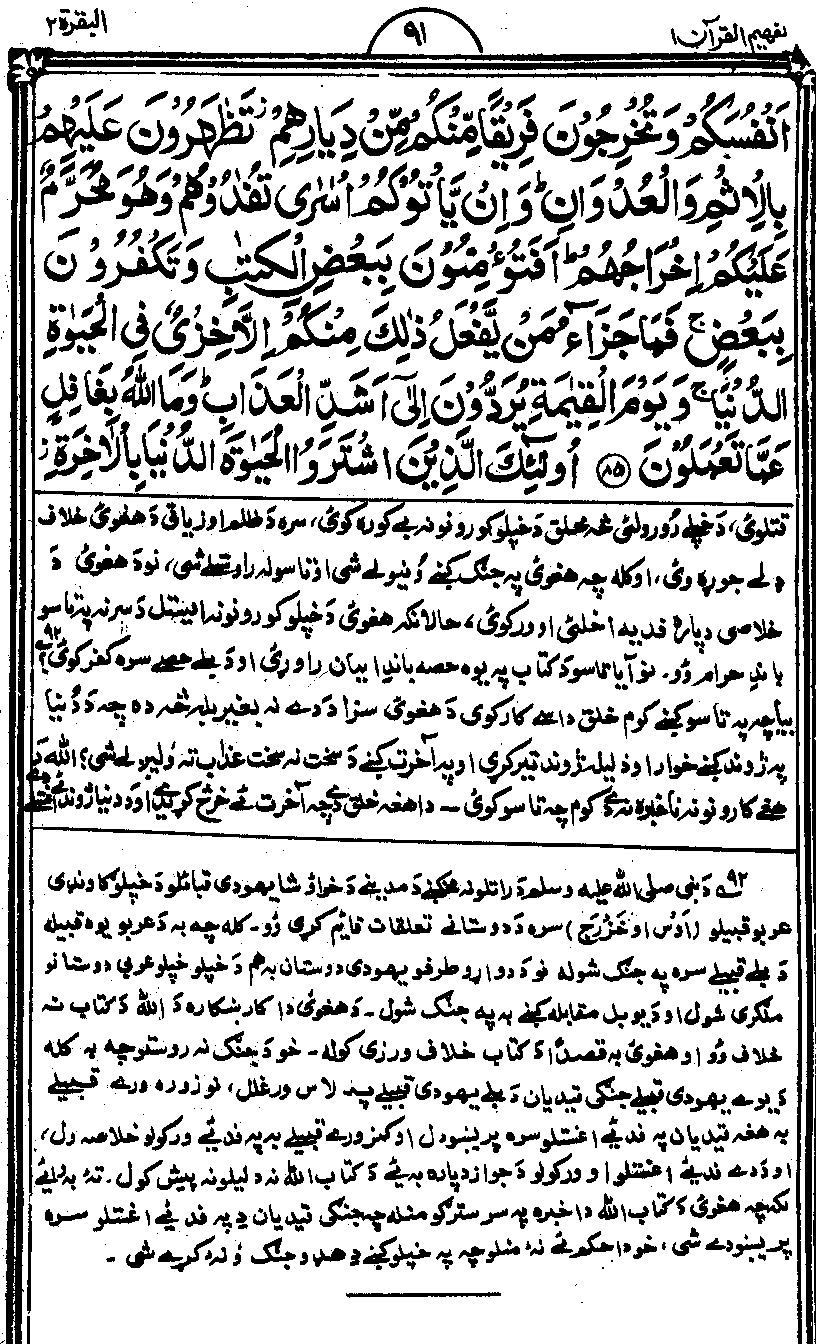 تفهيم القرآن ١
٩١
البقرة ٢
اَنْفُسَكُمْ وَتُخْرِجُوْنَ فَرِيْقًا مِّنْكُمْ مِّنْ دِيَارِهِمْ ز تَظٰهَرُوْنَ عَلَيْهِمْ
بِالْاِثْمِ وَالْعُدْوَانِ ط وَاِنْ يَّاْتُوْكُمْ اُسٰرٰى تُفٰدُوْهُمْ وَهُوَ مُحَرَّمٌ
عَلَيْكُمْ اِخْرَاجُهُمْ ط اَفَتُؤْمِنُوْنَ بِبَعْضِ الْكِتٰبِ وَتَكْفُرُوْنَ
بِبَعْضٍ ج فَمَا جَزَآءُ مَنْ يَّفْعَلُ ذٰلِكَ مِنْكُمْ اِلَّا خِزْىٌ فِى الْحَيٰوةِ
الدُّنْيَا ج وَيَوْمَ الْقِيٰمَةِ يُرَدُّوْنَ اِلٰٓى اَشَدِّ الْعَذَابِ ط وَمَا اللّٰهُ بِغَافِلٍ
عَمَّا تَعْمَلُوْنَ ﴿٨٥﴾ اُولٰٓئِكَ الَّذِيْنَ اشْتَرَوُا الْحَيٰوةَ الدُّنْيَا بِالْاٰخِرَةِ ز
قتلوئ، دَ خپلے وُرورولئ څه خلق دَ خپلو کورونو نه بے کوره کوئ، سره دَ ظلم او زياتى دَ هغوئ خلاف
ډلے جوړه وئ، او کله چه هغوئ په جنګ کښے ونيولے شى او تاسو له راوستلے شى، نو دَ هغوئ دَ
خلاصى دپاره فديه اخلئ او ورکوئ، حالانکه هغوئ دَ خپلو کورونو نه ايستل دَ سر نه په تاسو
باندِ حرام وُو. نو آيا تاسو دَ کتاب په يوه حصه باندِ ايمان راوړئ او دَ بلے حصے سره کفر کوئ؟ ٩٢
بيا چه په تاسو کښے کوم خلق داسے کار کوى دَ هغوئ سزا دَ دے نه بغير بله څه ده چه دَ دُنيا
په ژوند کښے خوار او ذليله ژوند تير کړى او په آخرت کښے دَ سخت نه سخت عذاب ته وُليږلے شى؟ الله دَ
هغے کارونو نه ناخبره نه دے کوم چه تاسو کوئ — دا هغه خلق دى چه آخرت ئے خرڅ کړيدے او دَ دنيا ژوند ئے
٩٢ ے دَ نبى صلى الله عليه وسلم دَ راتلو نه مخکښے دَ مدينے دَ خواؤ شا يهودى قبائلو دَ خپلو ګاونډى
عربو قبيلو (اَوْس او خَزْرَج) سره دَ دوستانے تعلقات قائم کړى وُو۔ کله چه به دَ عربو يوه قبيله
دَ بلے قبيلے سره په جنګ شوله نو دَ دواړو طرفو يهودى دوستان به هم دَ خپلو خپلو عربى دوستانو
ملګرى شول او دَ يو بل مقابله کښے به په جنګ شول۔ دَ هغوئ دا کار ښکاره دَ الله دَ کتاب نه
خلاف وُو او هغوئ به قصداً دَ کتاب خلاف ورزى کوله۔ خو دَ جنګ نه روستو چه به کله
دَ يوے يهودى قبيلے جنګى قيديان دَ بلے يهودى قبيلے په لاس ورغلل، نو زوره ورے قبيلے
به هغه قيديان په فديئے اغستلو سره پريښودل او کمزورے قبيلے به په فديئے ورکولو خلاصول،
او دَ دے فديئے اغستلو او ورکولو دَ جواز دپاره به ئے دَ کتاب الله نه دليلونه پيش کول۔ تۀ به وائے
لکه چه هغوئ دَ کتاب الله دا خبره په سر سترګو منله چه جنګى قيديان دِ په فديئے اغستلو سره
پريښودے شى، خو دا حکم ئے نۀ منلو چه په خپلو کښے دِ هډو جنګ وُ نۀ کړے شى ۔